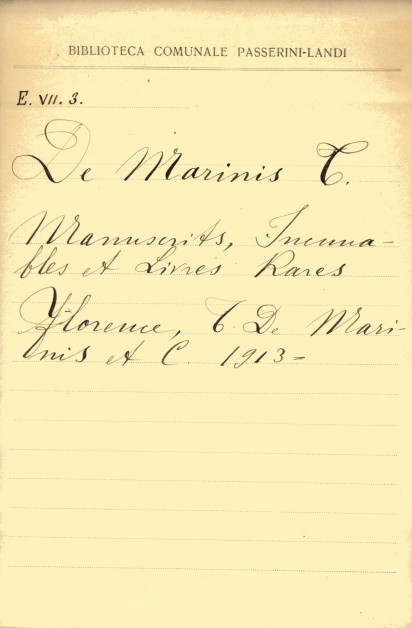 BIBLIOTECA COMUNALE PASSERINI-LANDI
E. VII. 3.
De Marinis T.
Manuscrits, Incuna-
bles et Livres Rares
Florence, T. De Mari-
nis et C. 1913=